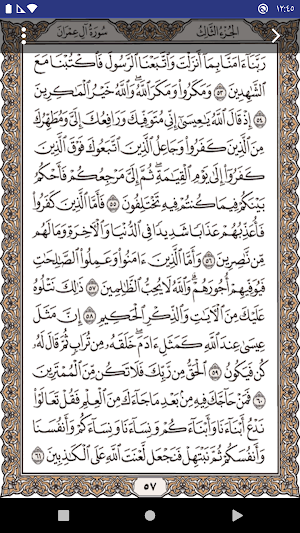 ١٢:٤٥
سُورَةُ آلِ عِمْرَانَ الجُزْءُ الثَّالِثُ
رَبَّنَآ ءَامَنَّا بِمَآ أَنزَلْتَ وَٱتَّبَعْنَا ٱلرَّسُولَ فَٱكْتُبْنَا مَعَ
ٱلشَّٰهِدِينَ ٥٣ وَمَكَرُوا۟ وَمَكَرَ ٱللَّهُ وَٱللَّهُ خَيْرُ ٱلْمَٰكِرِينَ
٥٤ إِذْ قَالَ ٱللَّهُ يَٰعِيسَىٰٓ إِنِّى مُتَوَفِّيكَ وَرَافِعُكَ إِلَىَّ وَمُطَهِّرُكَ
مِنَ ٱلَّذِينَ كَفَرُوا۟ وَجَاعِلُ ٱلَّذِينَ ٱتَّبَعُوكَ فَوْقَ ٱلَّذِينَ
كَفَرُوٓا۟ إِلَىٰ يَوْمِ ٱلْقِيَٰمَةِ ثُمَّ إِلَىَّ مَرْجِعُكُمْ فَأَحْكُمُ
بَيْنَكُمْ فِيمَا كُنتُمْ فِيهِ تَخْتَلِفُونَ ٥٥ فَأَمَّا ٱلَّذِينَ كَفَرُوا۟
فَأُعَذِّبُهُمْ عَذَابًا شَدِيدًا فِى ٱلدُّنْيَا وَٱلْءَاخِرَةِ وَمَا لَهُم
مِّن نَّٰصِرِينَ ٥٦ وَأَمَّا ٱلَّذِينَ ءَامَنُوا۟ وَعَمِلُوا۟ ٱلصَّٰلِحَٰتِ
فَيُوَفِّيهِمْ أُجُورَهُمْ وَٱللَّهُ لَا يُحِبُّ ٱلظَّٰلِمِينَ ٥٧ ذَٰلِكَ نَتْلُوهُ
عَلَيْكَ مِنَ ٱلْءَايَٰتِ وَٱلذِّكْرِ ٱلْحَكِيمِ ٥٨ إِنَّ مَثَلَ
عِيسَىٰ عِندَ ٱللَّهِ كَمَثَلِ ءَادَمَ خَلَقَهُۥ مِن تُرَابٍ ثُمَّ قَالَ لَهُۥ
كُن فَيَكُونُ ٥٩ ٱلْحَقُّ مِن رَّبِّكَ فَلَا تَكُن مِّنَ ٱلْمُمْتَرِينَ
٦٠ فَمَنْ حَآجَّكَ فِيهِ مِنۢ بَعْدِ مَا جَآءَكَ مِنَ ٱلْعِلْمِ فَقُلْ تَعَالَوْا۟
نَدْعُ أَبْنَآءَنَا وَأَبْنَآءَكُمْ وَنِسَآءَنَا وَنِسَآءَكُمْ وَأَنفُسَنَا
وَأَنفُسَكُمْ ثُمَّ نَبْتَهِلْ فَنَجْعَل لَّعْنَتَ ٱللَّهِ عَلَى ٱلْكَٰذِبِينَ ٦١
٥٧